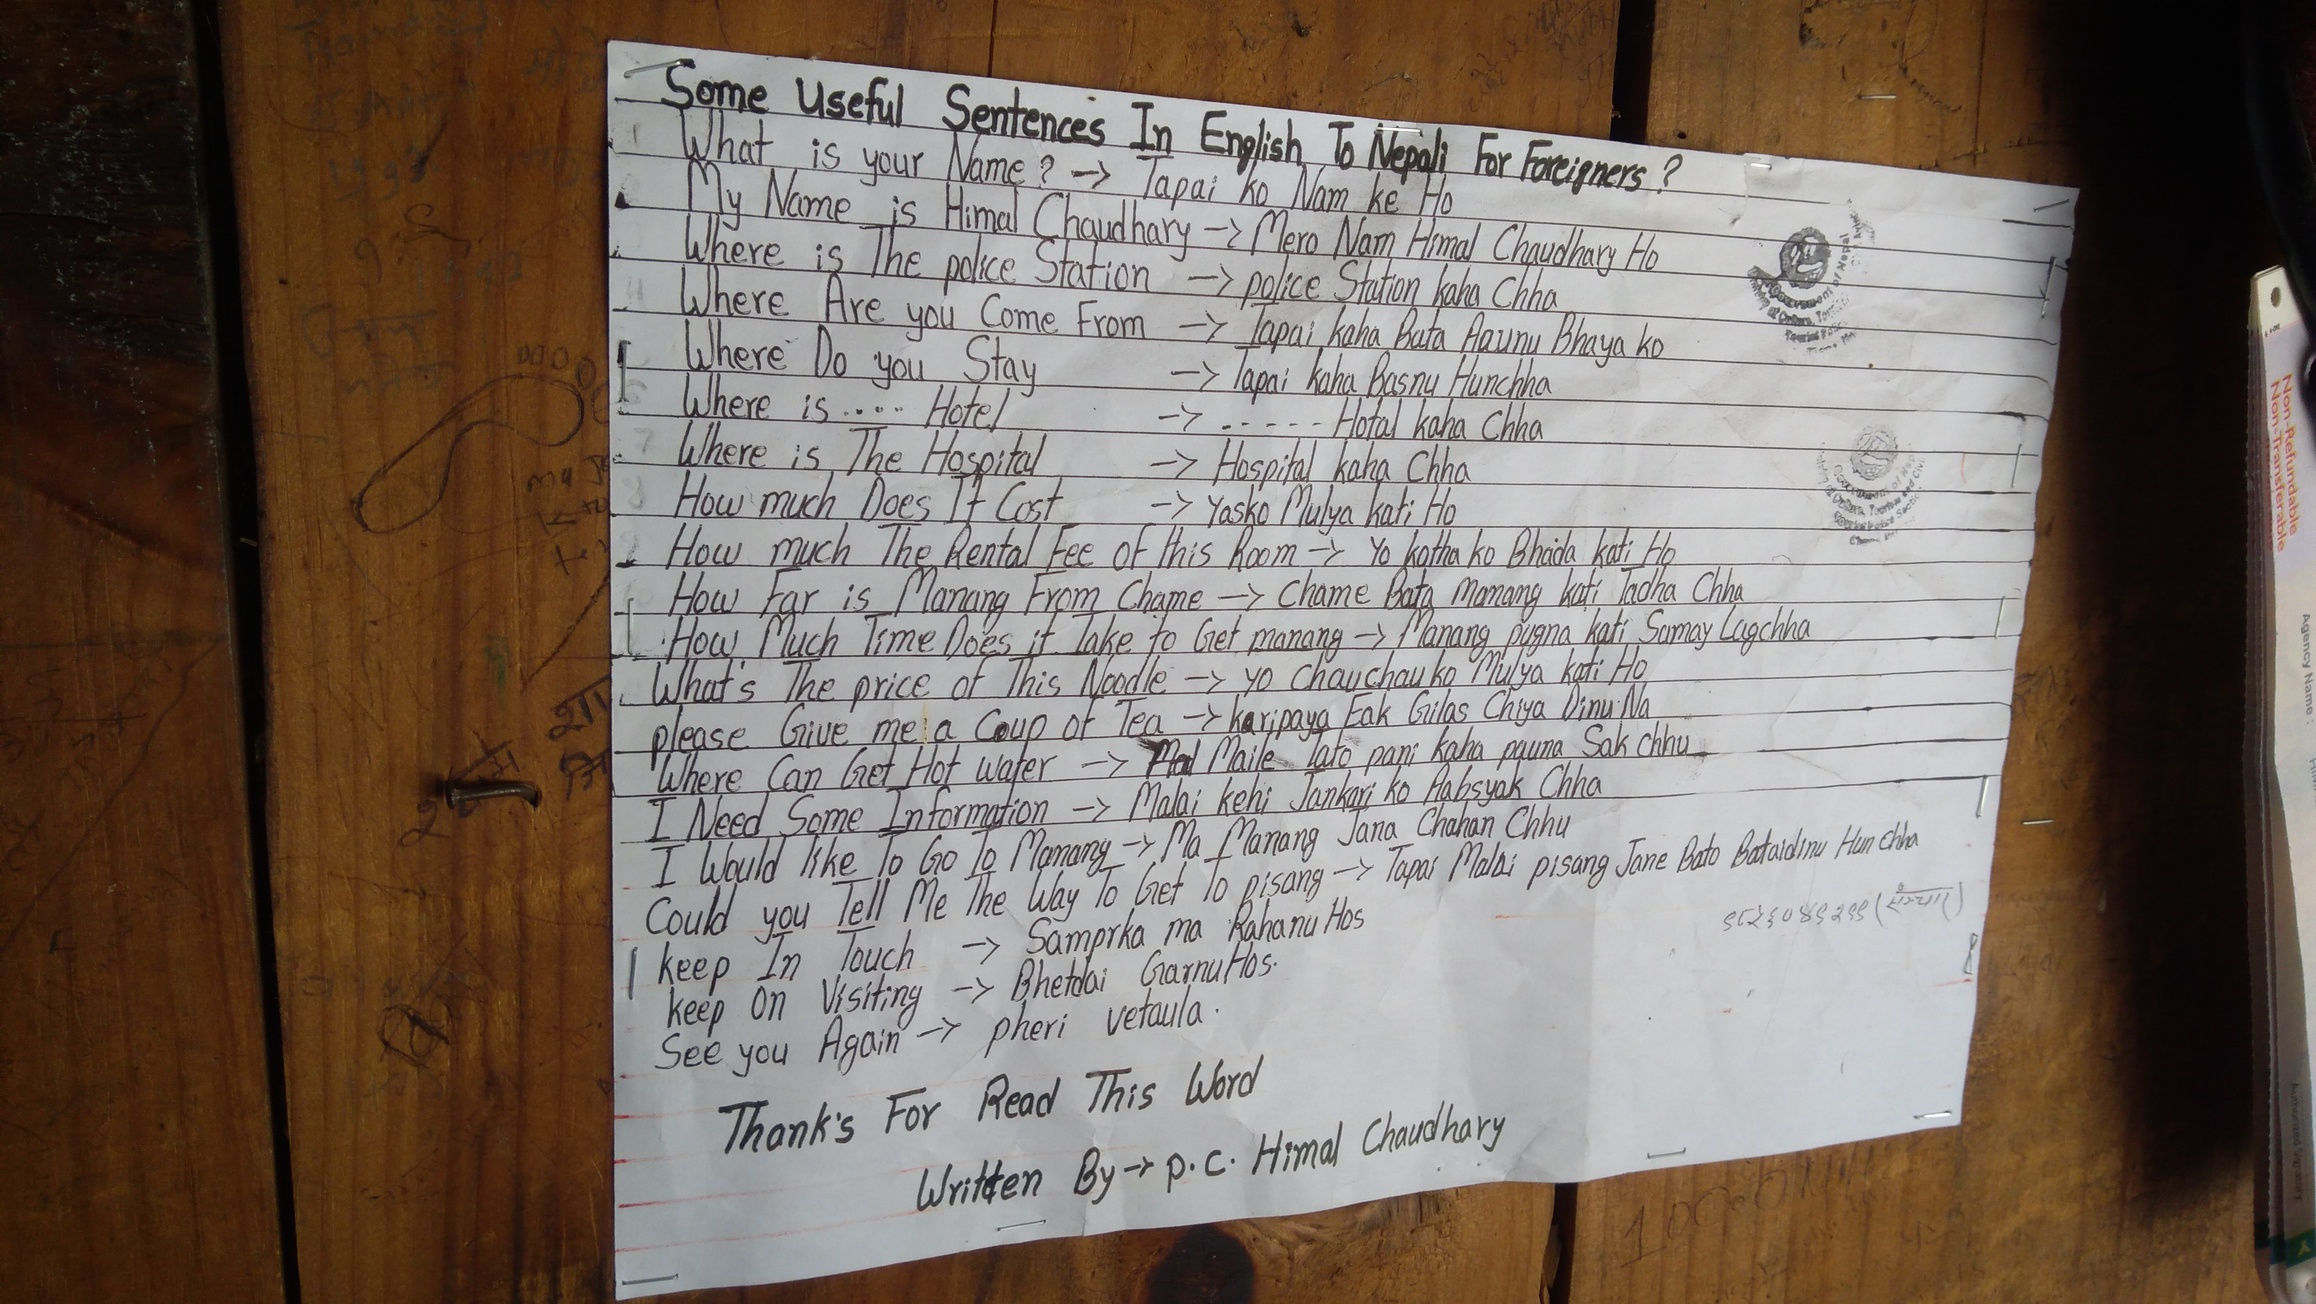 Some Useful Sentences In English To Nepali For Foreigners ?
What is your Name ? → Tapai ko Nam ke Ho
My Name is Himal Chaudhary → Mero Nam Himal Chaudhary Ho
Where is The police Station → police Station kaha Chha
Where Are you Come From → Tapai kaha Bata Aaunu Bhaya ko
Where Do you Stay → Tapai kaha Basnu Hunchha
Where is .... Hotel → ..... Hotal kaha Chha
7 Where is The Hospital → Hospital kaha Chha
How much Does It Cost → Yasko Mulya kati Ho
How much The Rental Fee of this Room → Yo kotha ko Bhada kati Ho
How Far is Manang From Chame → Chame Bata manang kati Tadha Chha
How Much Time Does it Take to Get manang → Manang pugna kati Samay Lagchha
What's The price of This Noodle → yo chauchau ko Mulya kati Ho
please Give me a Coup of Tea → karipaya Eak Gilas Chiya Dinu Na
Where Can Get Hot water → Maile Tato pani kaha pauna Sak chhu
I Need Some Information → Malai kehi Jankari ko Aabsyak Chha
I Would like To Go To Manang → Ma Manang Jana Chahan Chhu
Could you Tell Me The Way To Get To pisang → Tapai Malai pisang Jane Bato Bataidinu Hun chha
keep In Touch → Samprka ma Rahanu Hos
keep On Visiting → Bhetdai Garnu Hos.
See you Again → pheri vetaula.
Thank's For Read This Word
Written By → p.c. Himal Chaudhary
Government of Nepal
Non-Refundable
Non-Transferable
Agency Name :